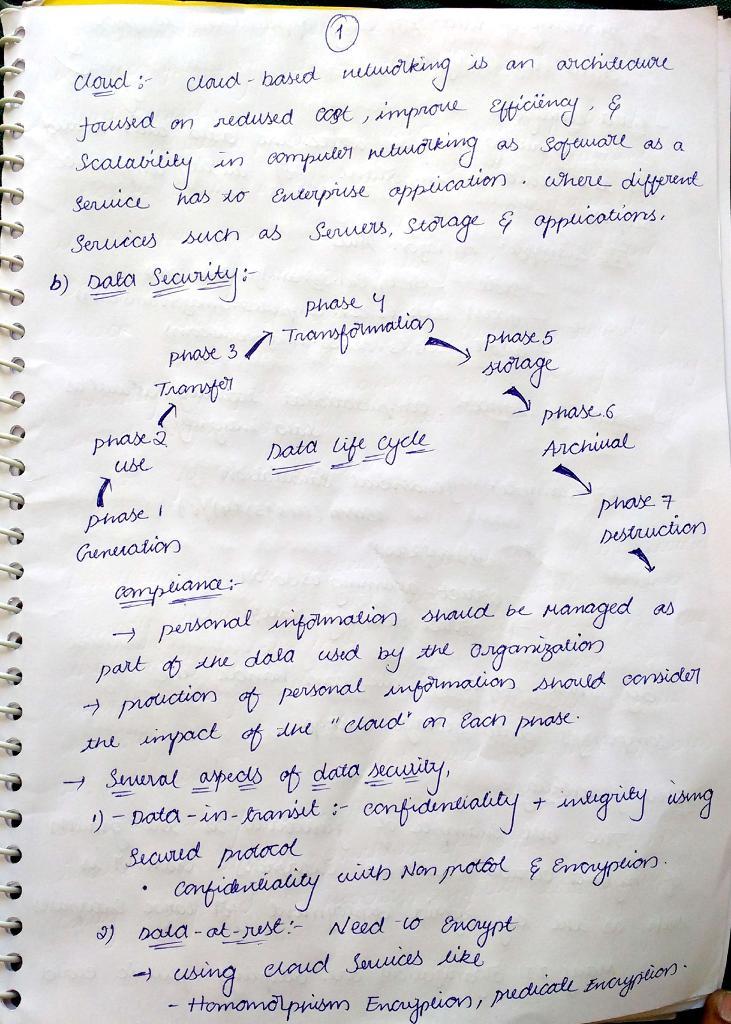 1
Cloud :- Cloud-based networking is an architecture
focused on redused cost, improve Efficiency, &
Scalability in computer networking as Software as a
Service has to Enterprise application. Where different
Services such as Servers, Storage & applications.
b) Data Security:-
phase 4
Transformation
phase 3
Transfer
phase 5
storage
phase 2
use
Data Life Cycle
phase 6
Archival
phase 1
Generation
phase 7
Destruction
Compliance:-
→ personal information should be Managed as
part of the data used by the Organization
→ protection of personal information should consider
the impact of the "cloud" on Each phase.
→ Several aspects of data security,
1) - Data-in-transit :- confidentiality + integrity using
Secured protocol
• Confidentiality with Non protcol & Encryption.
2) Data-at-rest:- Need to Encrypt
→ using cloud Services like
- Homomorphism Encryption, predicate Encryption.